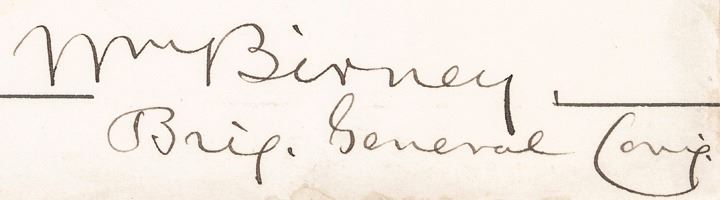 Wm Birney.
Brig. General Com'g.